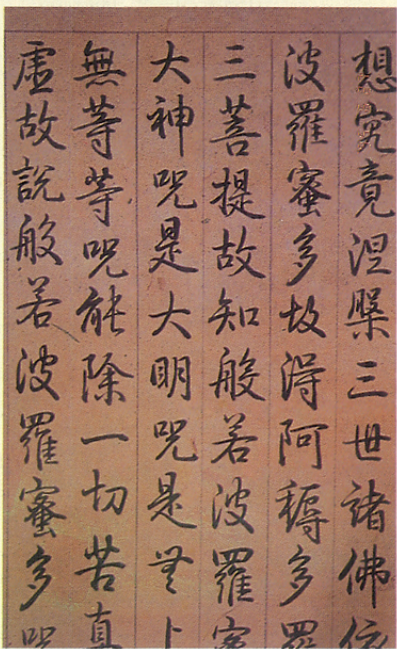 想究竟涅槃三世諸佛依
波羅蜜多故得阿耨多羅
三菩提故知般若波羅蜜
大神咒是大明咒是无上
無等等咒能除一切苦真
虛故說般若波羅蜜多咒